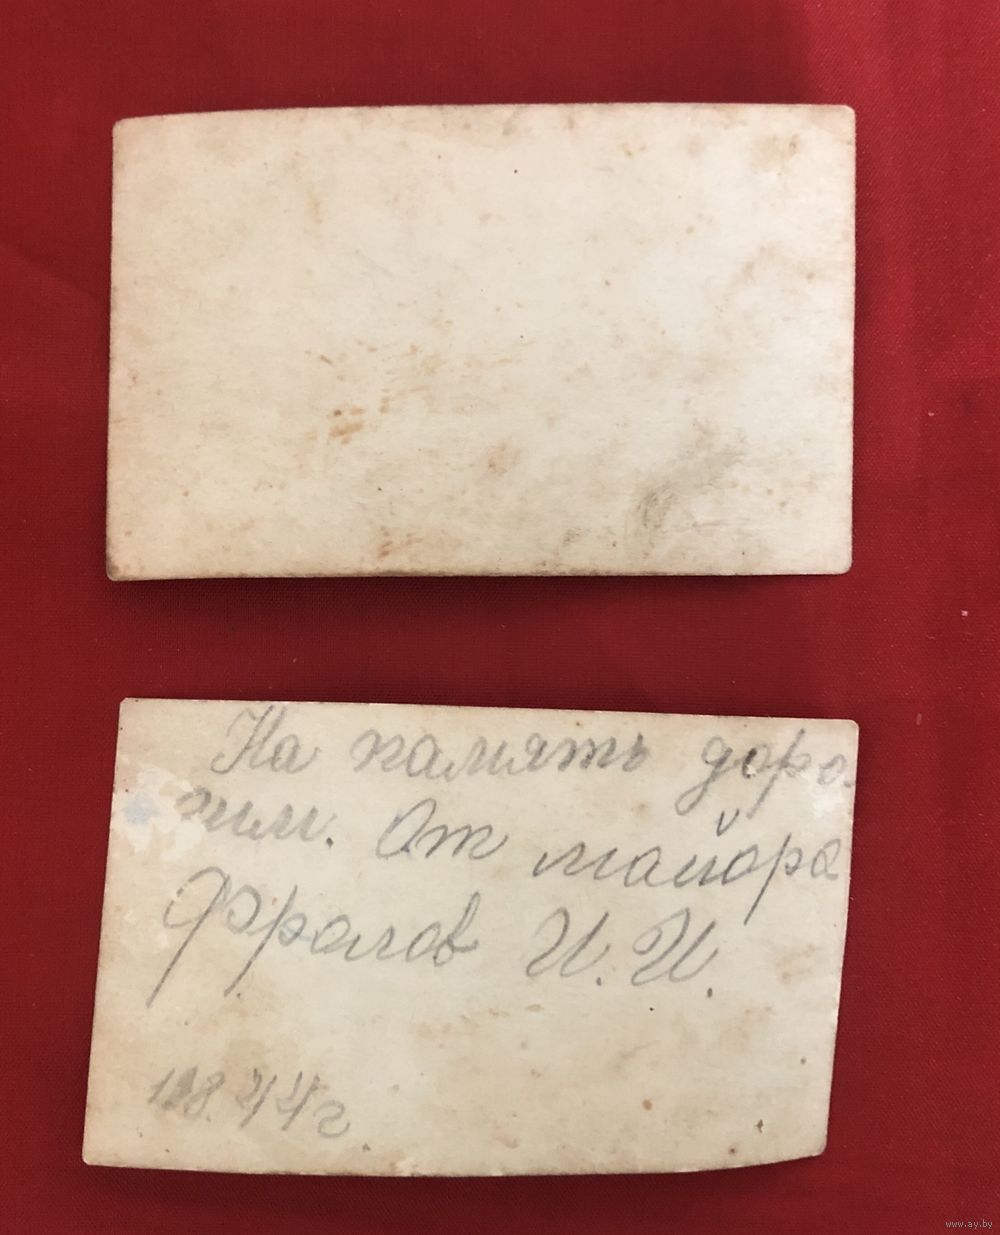 На память доро
гим. От майора
Фролов И. И.
1.8.44 г
www.ay.by